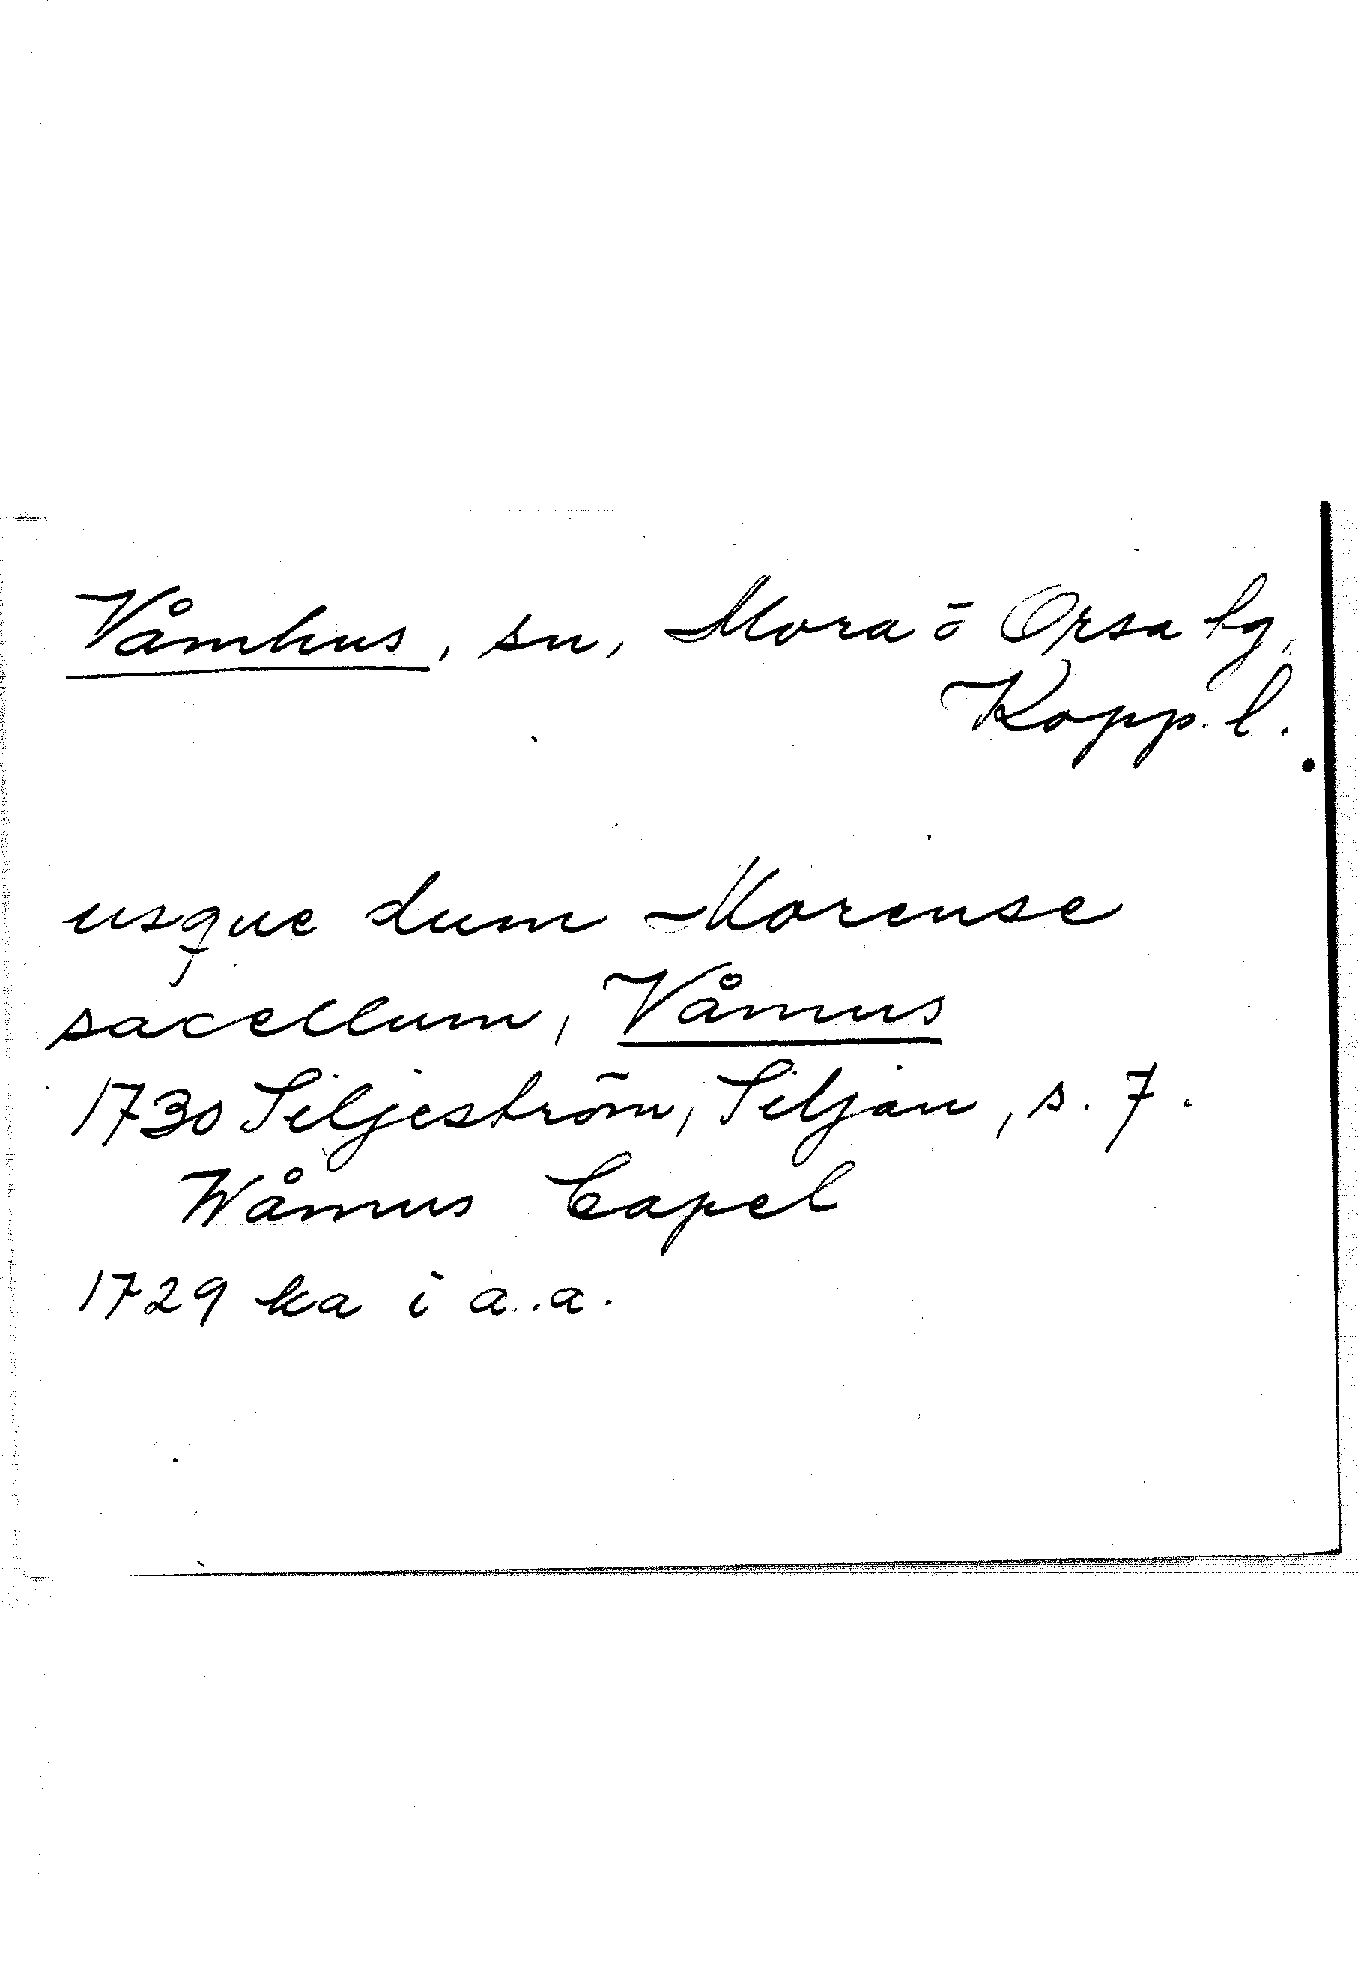 Våmhus, sn, Mora o Orsa tg,
Kopp. l.
usque dum Morense
sacellum, Våmus
1730 Siljeström, Siljan, s. 7.
Wåmus Capel
1729 ka i a.a.